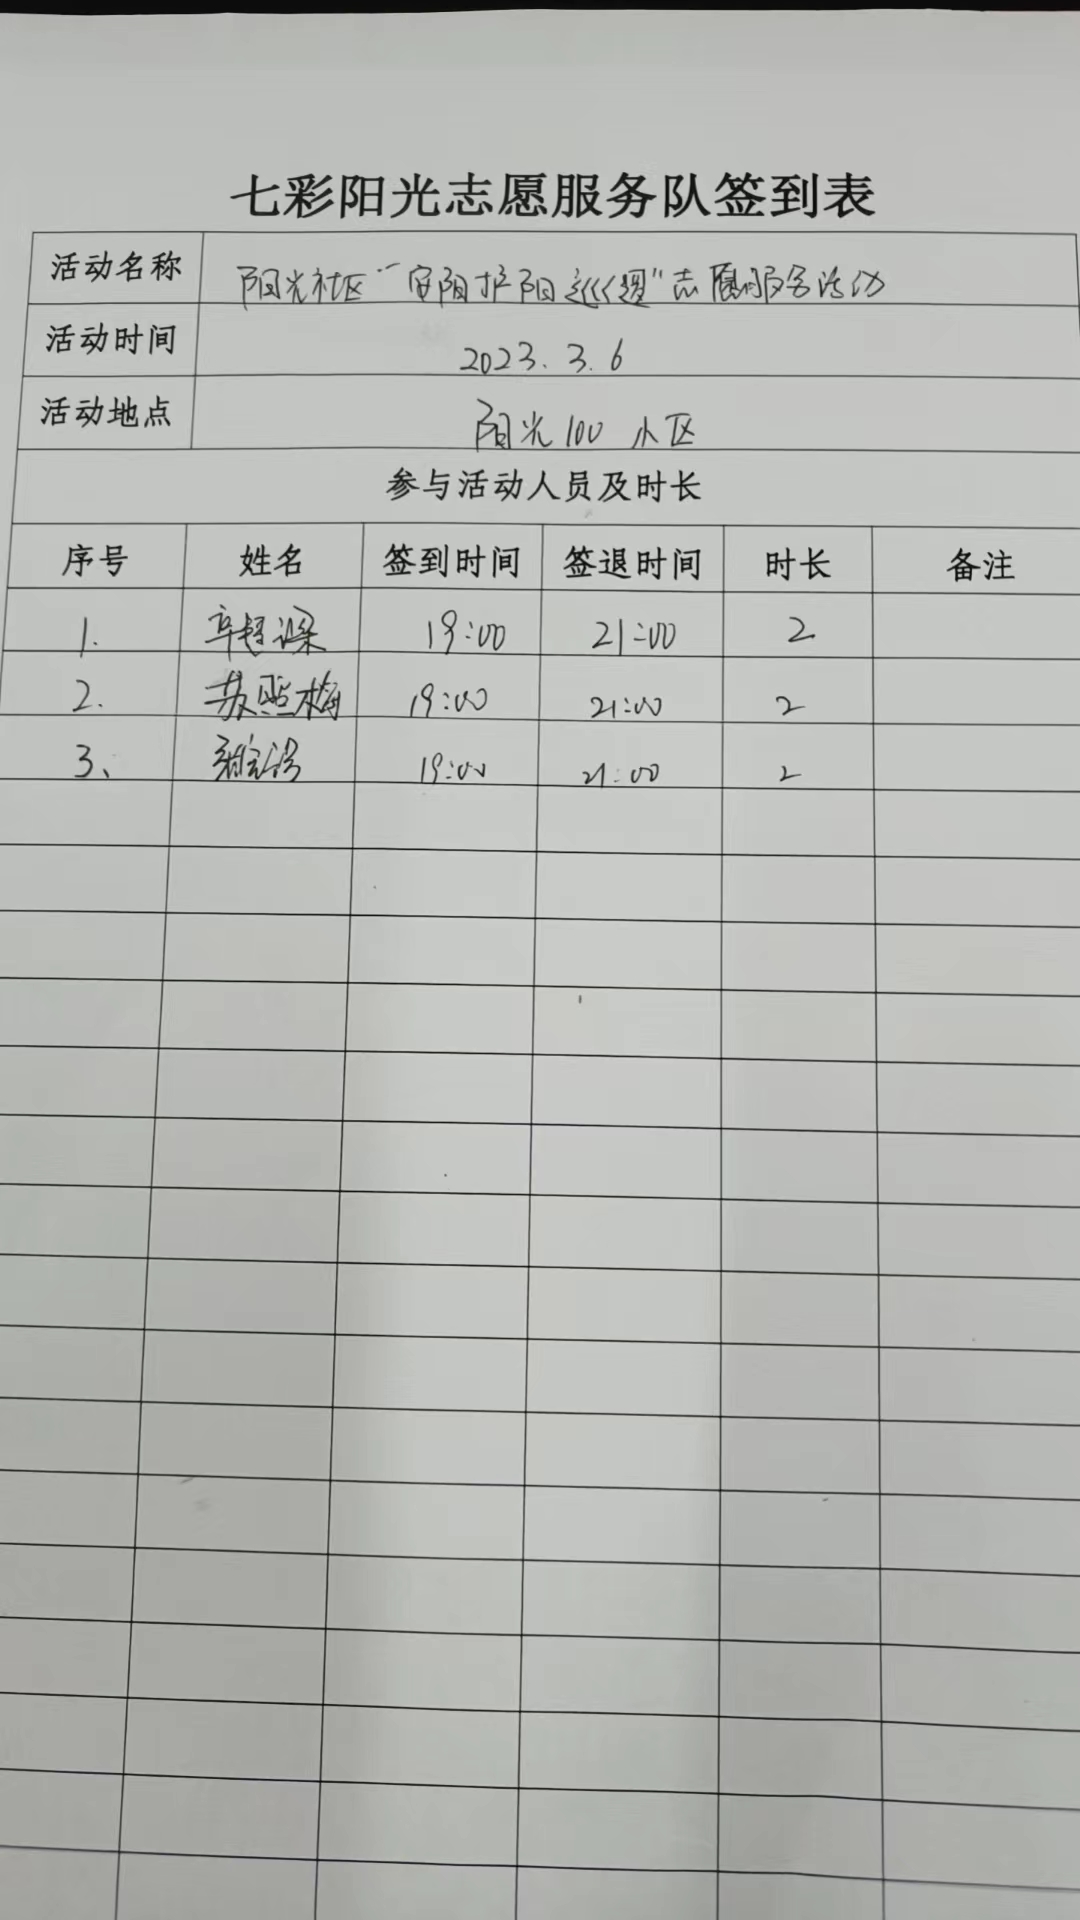 七彩阳光志愿服务队签到表
活动名称 阳光社区“安阳护阳巡逻”志愿服务活动
活动时间 2023.3.6
活动地点 阳光100 小区
参与活动人员及时长
序号 姓名 签到时间 签退时间 时长 备注
1. 19:00 21:00 2
2. 苏照梅 19:00 21:00 2
3、 19:00 21:00 2